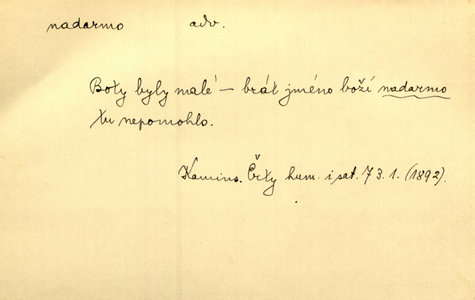 nadarmo adv.
Boty byly malé — brát jméno boží nadarmo
tu nepomohlo.
Kamins. Črty hum. i sat. 73. 1. (1892).